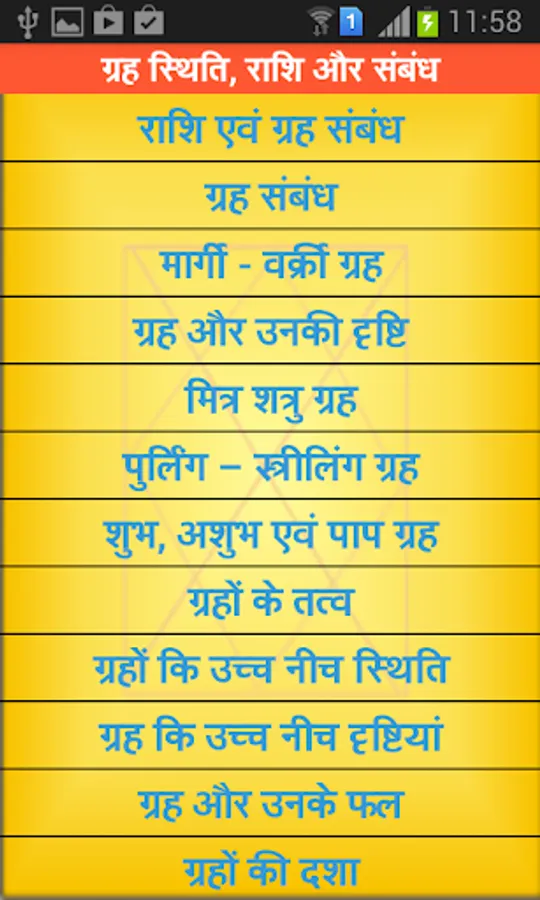 1
11:58
ग्रह स्थिति, राशि और संबंध
राशि एवं ग्रह संबंध
ग्रह संबंध
मार्गी - वर्क्री ग्रह
ग्रह और उनकी दृष्टि
मित्र शत्रु ग्रह
पुर्लिंग – स्त्रीलिंग ग्रह
शुभ, अशुभ एवं पाप ग्रह
ग्रहों के तत्व
ग्रहों कि उच्च नीच स्थिति
ग्रह कि उच्च नीच दृष्टियां
ग्रह और उनके फल
ग्रहों की दशा